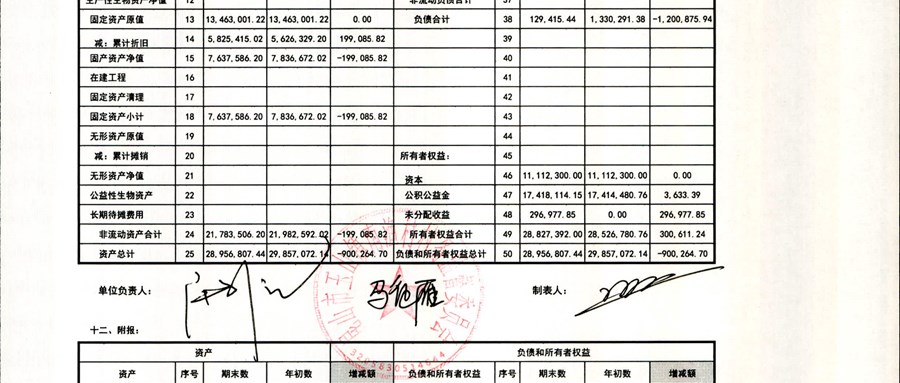 生产性生物资产净值 12 非流动负债合计 37
固定资产原值 13 13,463,001.22 13,463,001.22 0.00 负债合计 38 129,415.44 1,330,291.38 -1,200,875.94
减：累计折旧 14 5,825,415.02 5,626,329.20 199,085.82 39
固产资产净值 15 7,637,586.20 7,836,672.02 -199,085.82 40
在建工程 16 41
固定资产清理 17 42
固定资产小计 18 7,637,586.20 7,836,672.02 -199,085.82 43
无形资产原值 19 44
减：累计摊销 20 所有者权益： 45
无形资产净值 21 资本 46 11,112,300.00 11,112,300.00 0.00
公益性生物资产 22 公积公益金 47 17,418,114.15 17,414,480.76 3,633.39
长期待摊费用 23 未分配收益 48 296,977.85 0.00 296,977.85
非流动资产合计 24 21,783,506.20 21,982,592.02 -199,085.82 所有者权益合计 49 28,827,392.00 28,526,780.76 300,611.24
资产总计 25 28,956,807.44 29,857,072.14 -900,264.70 负债和所有者权益总计 50 28,956,807.44 29,857,072.14 -900,264.70
单位负责人： 制表人：
十二、附报：
资产 负债和所有者权益
资产 序号 期末数 年初数 增减额 负债和所有者权益 序号 期末数 年初数 增减额